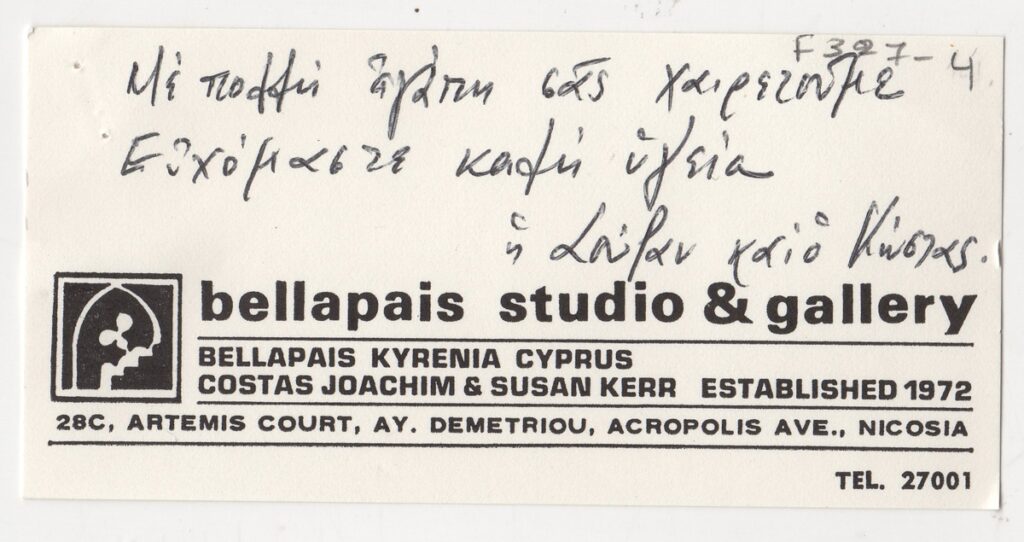 F327-4
Μέ πολλή ἀγάπη σᾶς χαιρετοῦμε
Εὐχόμαστε καλή ὑγεία
ἡ Σούζαν καί ὁ Κώστας.
bellapais studio & gallery
BELLAPAIS KYRENIA CYPRUS
COSTAS JOACHIM & SUSAN KERR ESTABLISHED 1972
28C, ARTEMIS COURT, AY. DEMETRIOU, ACROPOLIS AVE., NICOSIA
TEL. 27001